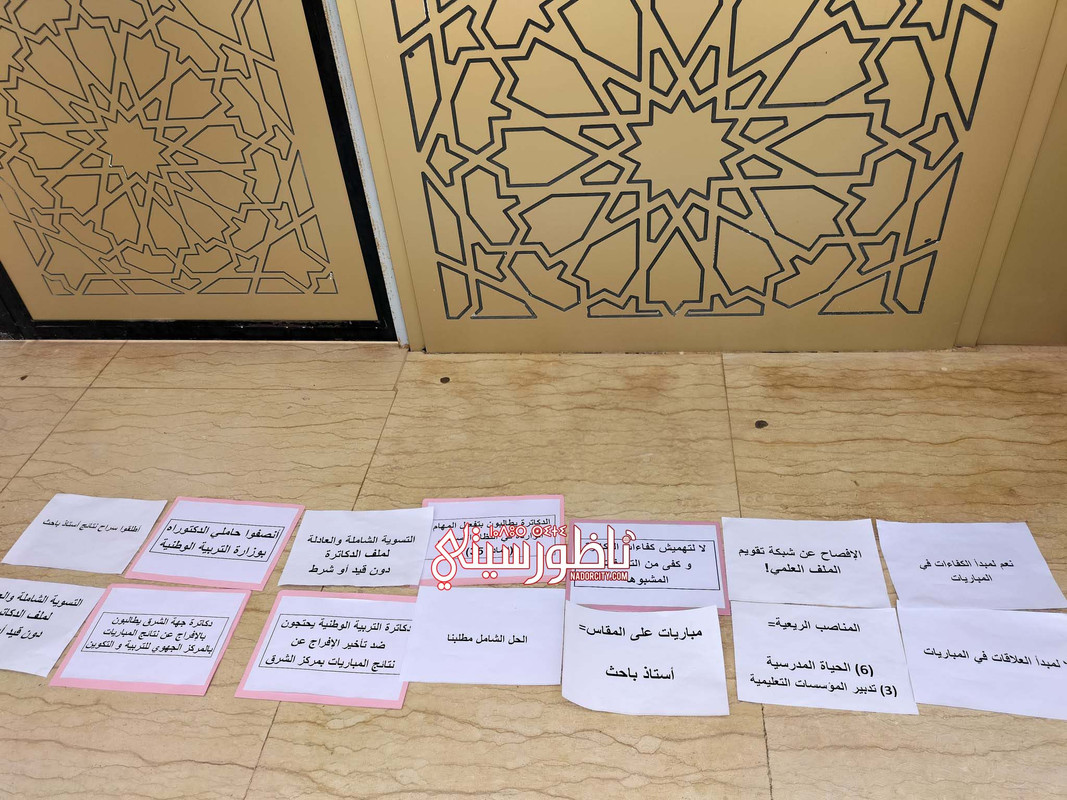 نعم لمبدأ الكفاءات في
المباريات
الإفصاح عن شبكة تقويم
الملف العلمي!
لا لتهميش كفاءات
و كفى من
المشبوهة
الدكاترة يطالبون بتفعيل المهام
التسوية الشاملة والعادلة
لملف الدكاترة
دون قيد أو شرط
أنصفوا حاملي الدكتوراه
بوزارة التربية الوطنية
أطلقوا سراح نتائج أستاذ باحث
لمبدأ العلاقات في المباريات
المناصب الريعية=
(6) الحياة المدرسية
(3) تدبير المؤسسات التعليمية
مباريات على المقاس=
أستاذ باحث
الحل الشامل مطلبنا
دكاترة التربية الوطنية يحتجون
ضد تأخير الافراج عن
نتائج المباريات بمركز الشرق
دكاترة جهة الشرق يطالبون
بالافراج عن نتائج المباريات
بالمركز الجهوي للتربية و التكوين
التسوية الشاملة
لملف
دون قيد
ناظورسيتي
NADORCITY.COM